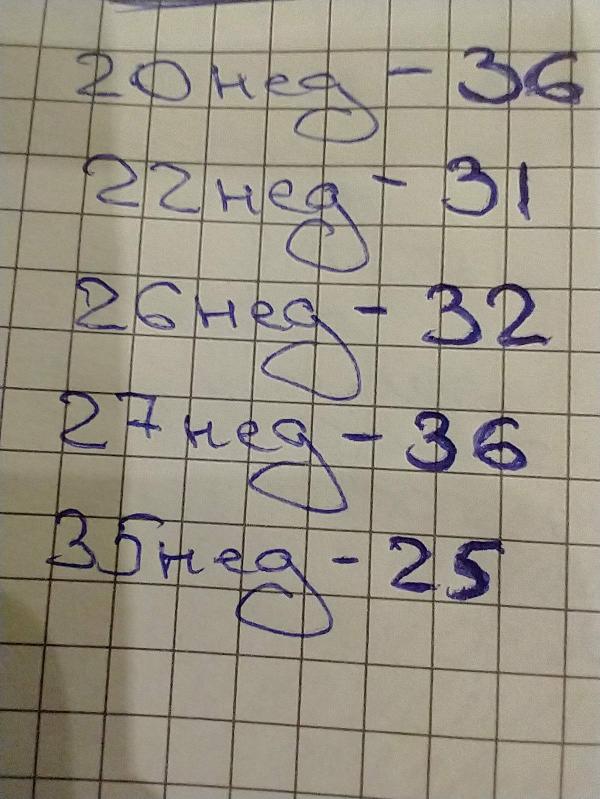 20нед - 36
22нед - 31
26нед - 32
27нед - 36
35нед - 25